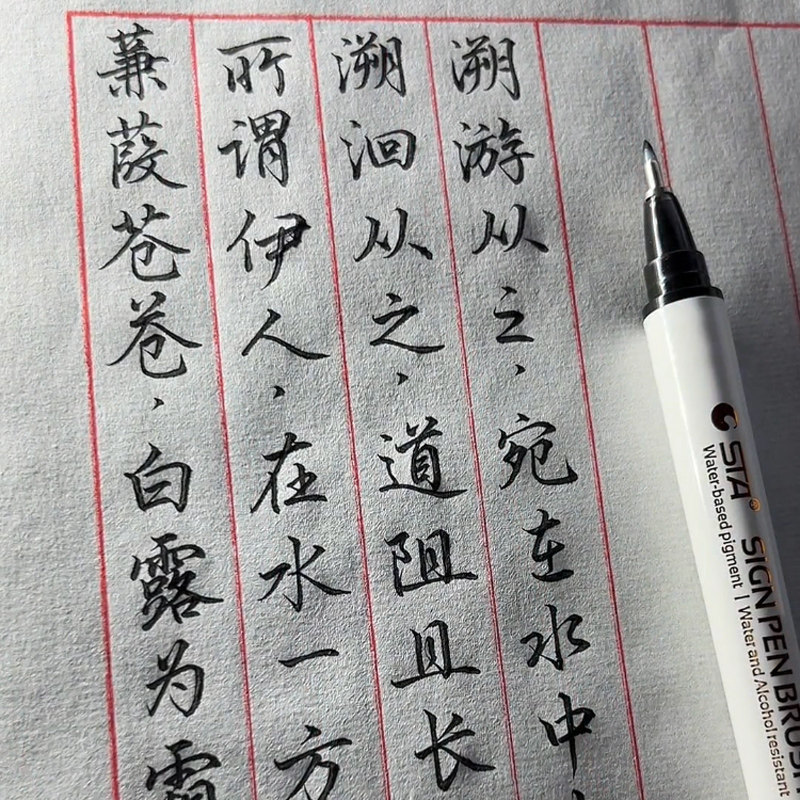 蒹葭苍苍，白露为霜
所谓伊人，在水一方
溯洄从之，道阻且长
溯游从之，宛在水中
STA
SIGN PEN BRUSH
Water-based pigment | Water and Alcohol resistant